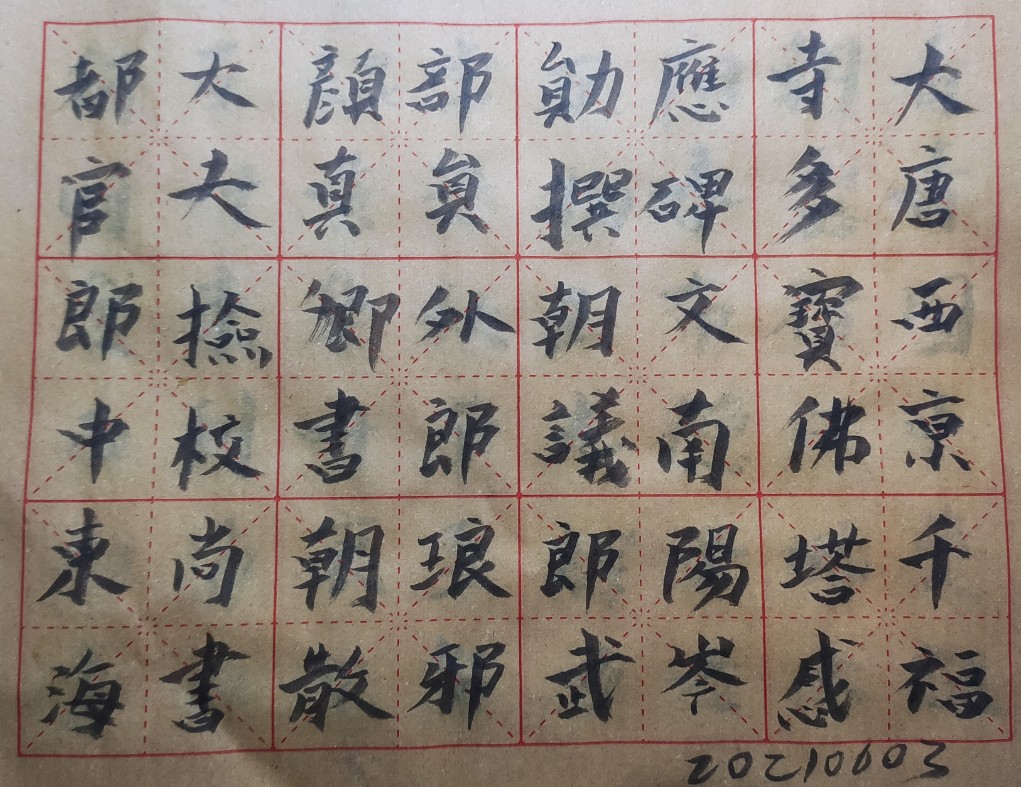 大唐西京千福
寺多寶佛塔感
應碑文南陽岑
勛撰朝議郎武
部員外郎琅邪
顏真卿書朝散
大夫撿校尚書
都官郎中東海
20210603